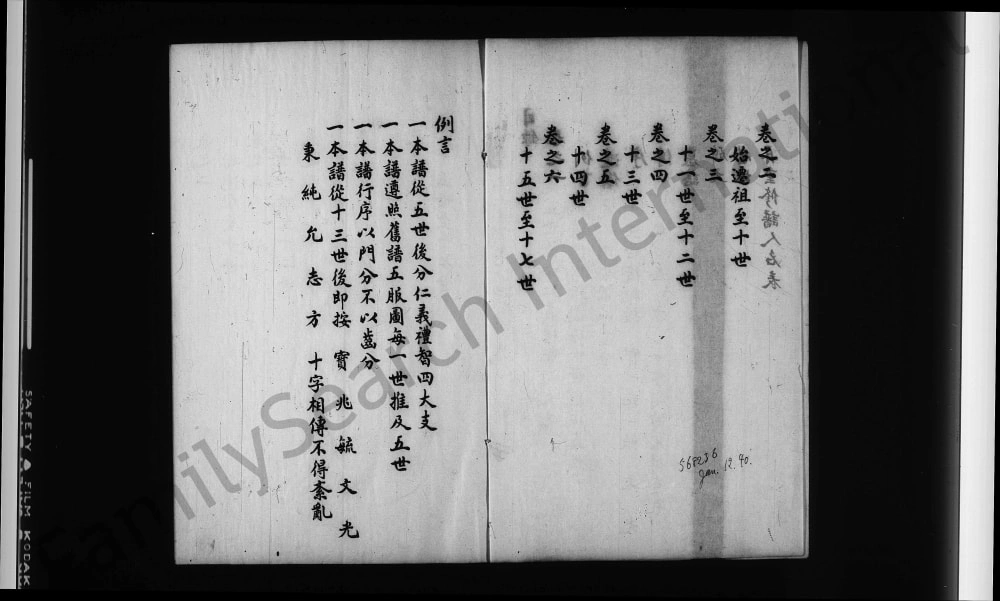 卷之二
始遷祖至十世
卷之三
十一世至十二世
卷之四
十三世
卷之五
十四世
卷之六
十五世至十七世
568256
Jan. 12. 40.
例言
一本譜從五世後分仁義禮智四大支
一本譜遵照舊譜五服圖每一世推及五世
一本譜行序以門分不以齒分
一本譜從十三世後即按 寶 兆 毓 文 光
東 純 允 志 方 十字相傳不得紊亂
FamilySearch International
SAFETY FILM KODAK